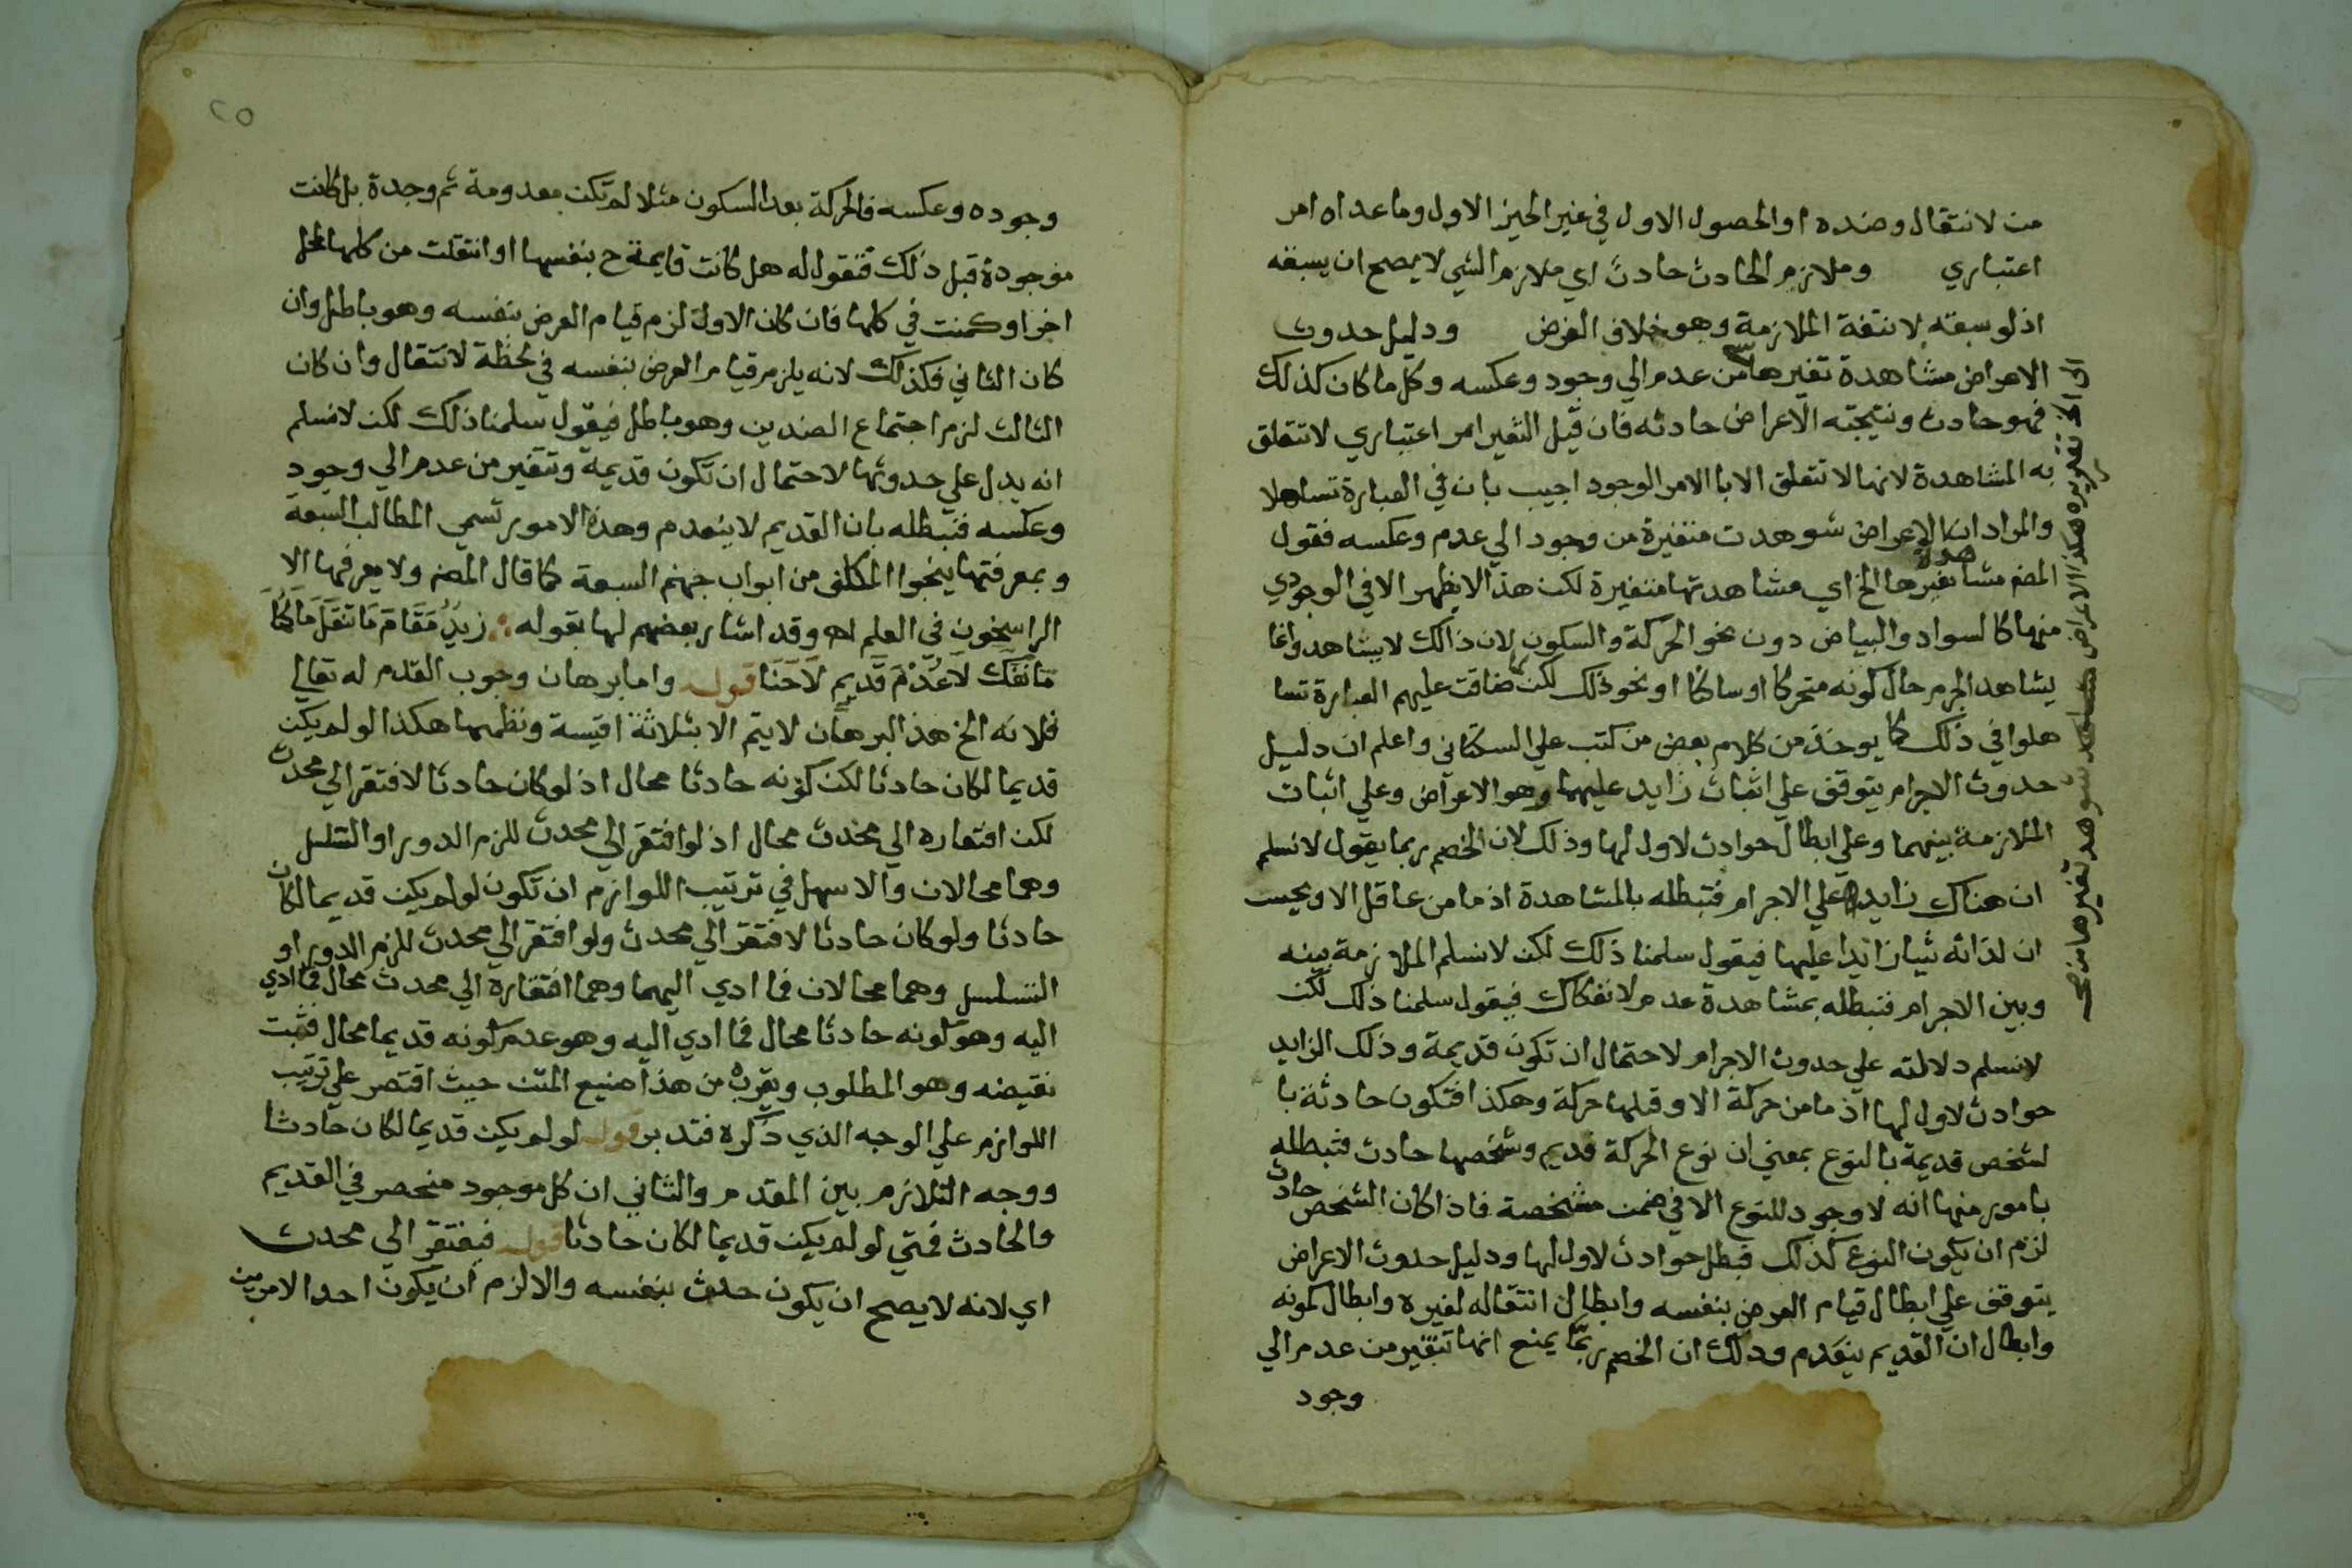 من لانتقال وضده او الحصول الاول في غير الحيز الاول وما عداه امر
اعتباري وملازم الحادث حادث اي ملازم الشي لا يصح ان يسبقه
اذ لو سبقه لانتفة الملازمة وهو خلاف الفرض ودليل حدوث
الاعراض مشاهدة تغيرها من عدم الي وجود وعكسه وكل ما كان كذلك
فهو حادث ونتيجته الاعراض حادثه فان قيل التغير امر اعتباري لا تتعلق
به المشاهدة لانها لا تتعلق الا بالامر الوجود اجيب بان في العبارة تساهلا
والمراد ان الاعراض شوهدت متغيرة من وجود الي عدم وعكسه فقول
المص مشاهدة تغيرها الخ اي مشاهدتها متغيرة لكن هذا لا يظهر الا في الوجودي
منها كالسواد والبياض دون نحو الحركة والسكون لان ذالك لا يشاهد وانما
يشاهد الجرم حال كونه متحركا او ساكنا او نحو ذلك لكن لما ضاقت عليهم العبارة تسا
هلوا في ذلك كما يوخذ من كلام بعض من كتب علي السكتاني واعلم ان دليل
حدوث الاجرام يتوقف علي اثبات زايد عليها وهو الاعراض وعلي اثبات
الملازمة بينهما وعلي ابطال حوادث لا ول لها وذلك لان الخصم ربما يقول لانسلم
ان هناك زايد علي الاجرام فتبطله بالمشاهدة اذ ما من عاقل الا ويحس
ان لذاته شيا زايدا عليها فيقول سلمنا ذلك لكن لانسلم الملازمة بينه
وبين الاجرام فتبطله بمشاهدة عدم لانفكاك فيقول سلمنا ذلك لكن
لانسلم دلالته علي حدوث الاجرام لاحتمال ان تكون قديمة وذلك الزايد
حوادث لا ول لها اذ ما من حركة الا وقبلها حركة وهكذا فتكون حادثة با
لشخص قديمة بالنوع بمعني ان نوع الحركة قديم وشخصها حادث فتبطله
بامور منها انه لا وجود للنوع الا في ضمن مشخصة فاذا كان الشخص حادث
لزم ان يكون النوع كذلك فبطل حوادث لا ول لها ودليل حدوث الاعراض
يتوقف علي ابطال قيام العرض بنفسه وابطال انتقاله لغيره وابطال كمونه
وابطال ان القديم ينعدم وذلك ان الخصم ربما يمنع انها تتغير من عدم الي
وجود
الي الخ تقريره هكذا الاعراض شوهد تغيرها من صح
٢٥
وجوده وعكسه فالحركة بعد السكون مثلا لم تكن معدومة ثم وجدة بل كانت
موجودة قبل ذلك فنقول له هل كانت قايمة ح بنفسها او انتقلت من كلها لمحل
اخر او كمنت في كلها فان كان الاول لزم قيام العرض بنفسه وهو باطل وان
كان الثاني فكذلك لانه يلزم قيام العرض بنفسه في لحظة لانتقال وان كان
الثالث لزم اجتماع الضدين وهو باطل فيقول سلمنا ذلك لكن لانسلم
انه يدل علي حدوثها لاحتمال ان تكون قديمة وتتغير من عدم الي وجود
وعكسه فتبطله بان القديم لا ينعدم وهذه الامور تسمي المطالب السبعة
وبمعرفتها ينجوا المكلف من ابواب جهنم السبعة كما قال المص ولا يعرفها الا
الراسخون في العلم اه وقد اشار بعضهم لها بقوله زيد مقام ما تنقل ما كنا
ما نفك لا عدم قديم لا حنا قوله واما برهان وجوب القدم له تعالي
فلانه الخ هذ البرهان لا يتم الا بثلاثة اقيسة ونظمها هكذا لو لم يكن
قديما لكان حادثا لكن كونه حادثا محال اذ لو كان حادثا لافتقر الي محدث
لكن افتقاره الي محدث محال اذ لو افتقر الي محدث للزم الدور او التسلسل
وهما محالان والاسهل في ترتيب اللوازم ان تكون لو لم يكن قديما لكان
حادثا ولو كان حادثا لافتقر الي محدث ولو افتقر الي محدث للزم الدور او
التسلسل وهما محالان فما ادي اليهما وهما افتقاره الي محدث محال فما ادي
اليه وهو كونه حادثا محال فما ادي اليه وهو عدم كونه قديما محال فثبت
نقيضه وهو المطلوب ويقرب من هذا صنيع المتن حيث اقتصر علي ترتيب
اللوازم علي الوجه الذي ذكره فتدبر قوله لو لم يكن قديما لكان حادثا
ووجه التلازم بين المقدم والثاني ان كل موجود منحصر في القديم
والحادث فمتي لو لم يكن قديما لكان حادثا قوله فيفتقر الي محدث
اي لانه لا يصح ان يكون حدث بنفسه والا لزم ان يكون احد الامرين